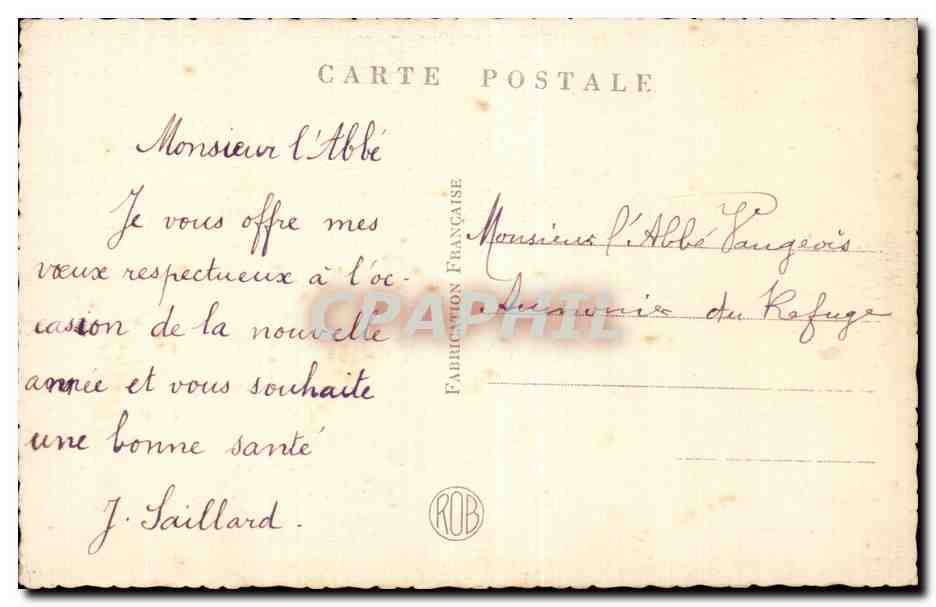 CARTE POSTALE
Monsieur l'Abbé
Je vous offre mes
vœux respectueux à l'oc-
casion de la nouvelle
année et vous souhaite
une bonne santé
J. Saillard.
FABRICATION FRANÇAISE
ROB
Monsieur l'Abbé Vaugeois
Aumonier du Refuge
CPAPHIL